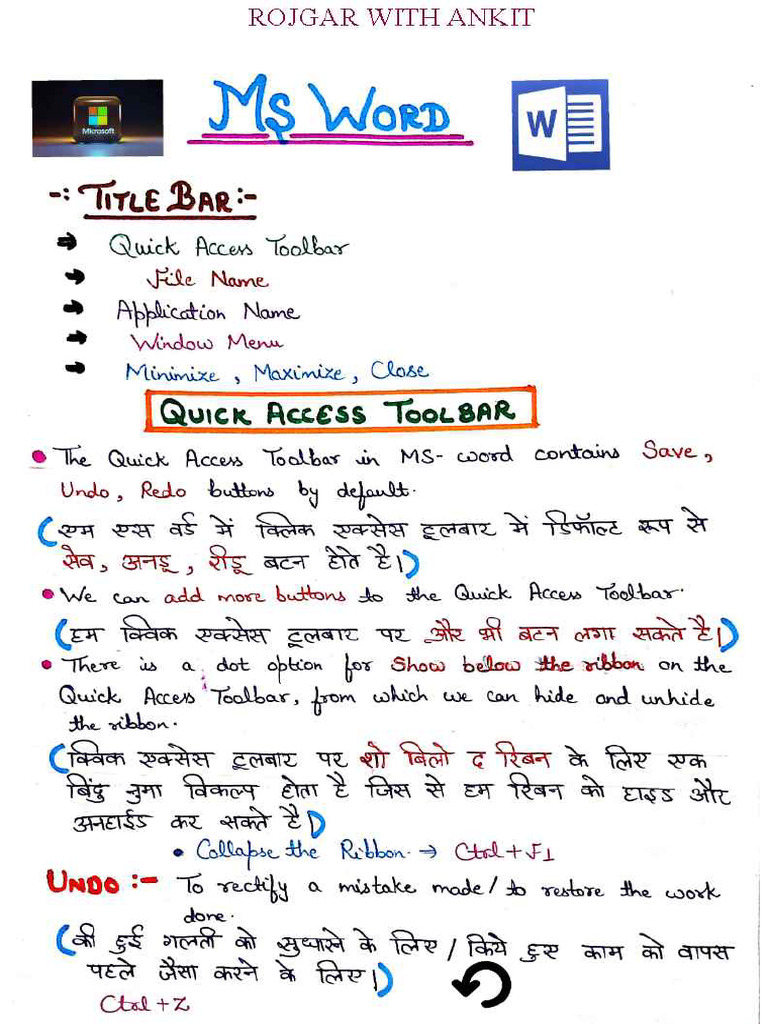 ROJGAR WITH ANKIT
Microsoft
MS WORD
W
-: TITLE BAR:-
⇒ Quick Access Toolbar
→ File Name
→ Application Name
→ Window Menu
→ Minimize, Maximize, Close
QUICK ACCESS TOOLBAR
• The Quick Access Toolbar in MS- word contains Save,
Undo, Redo buttons by default.
(एम एस वर्ड में क्लिक एक्सेस टूलबार में डिफॉल्ट रूप से
सेव, अनडू, रीडू बटन होते है।)
• We can add more buttons to the Quick Access Toolbar.
(हम क्विक एक्सेस टूलबार पर और भी बटन लगा सकते है।)
• There is a dot option for Show below the ribbon on the
Quick Access Toolbar, from which we can hide and unhide
the ribbon.
(क्विक एक्सेस टूलबार पर शो बिलो द रिबन के लिए एक
बिंदु नुमा विकल्प होता है जिस से हम रिबन को हाइड और
अनहाईड कर सकते है।)
• Collapse the Ribbon → Ctrl + F1
UNDO :- To rectify a mistake made / to restore the work
done.
(की हुई गलती को सुधारने के लिए / किये हुए काम को वापस
पहले जैसा करने के लिए।)
Ctrl + Z